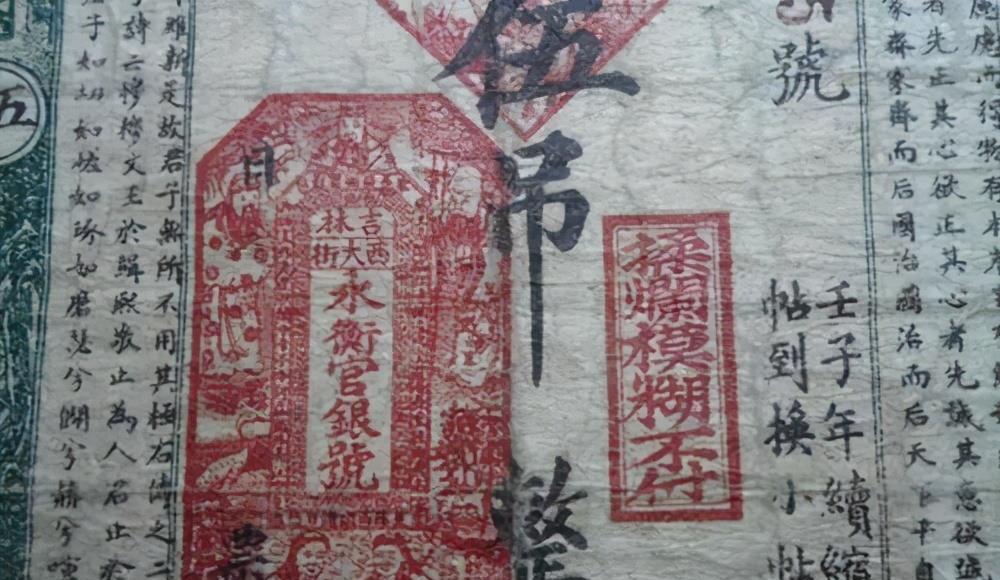 物有本
者先正其心欲正其心者先誠其意欲
家齊家齊而后國治國治而后天下平自
號
壬子年續
帖到換小帖
揉爛模糊不付
伍吊整
日
吉林
西大街
永衡官銀號
票
維新是故君子無所不用其極右傳之二
詩云穆穆文王於緝熙敬止為人君止於
子如切如磋如琢如磨瑟兮僩兮赫兮喧
五